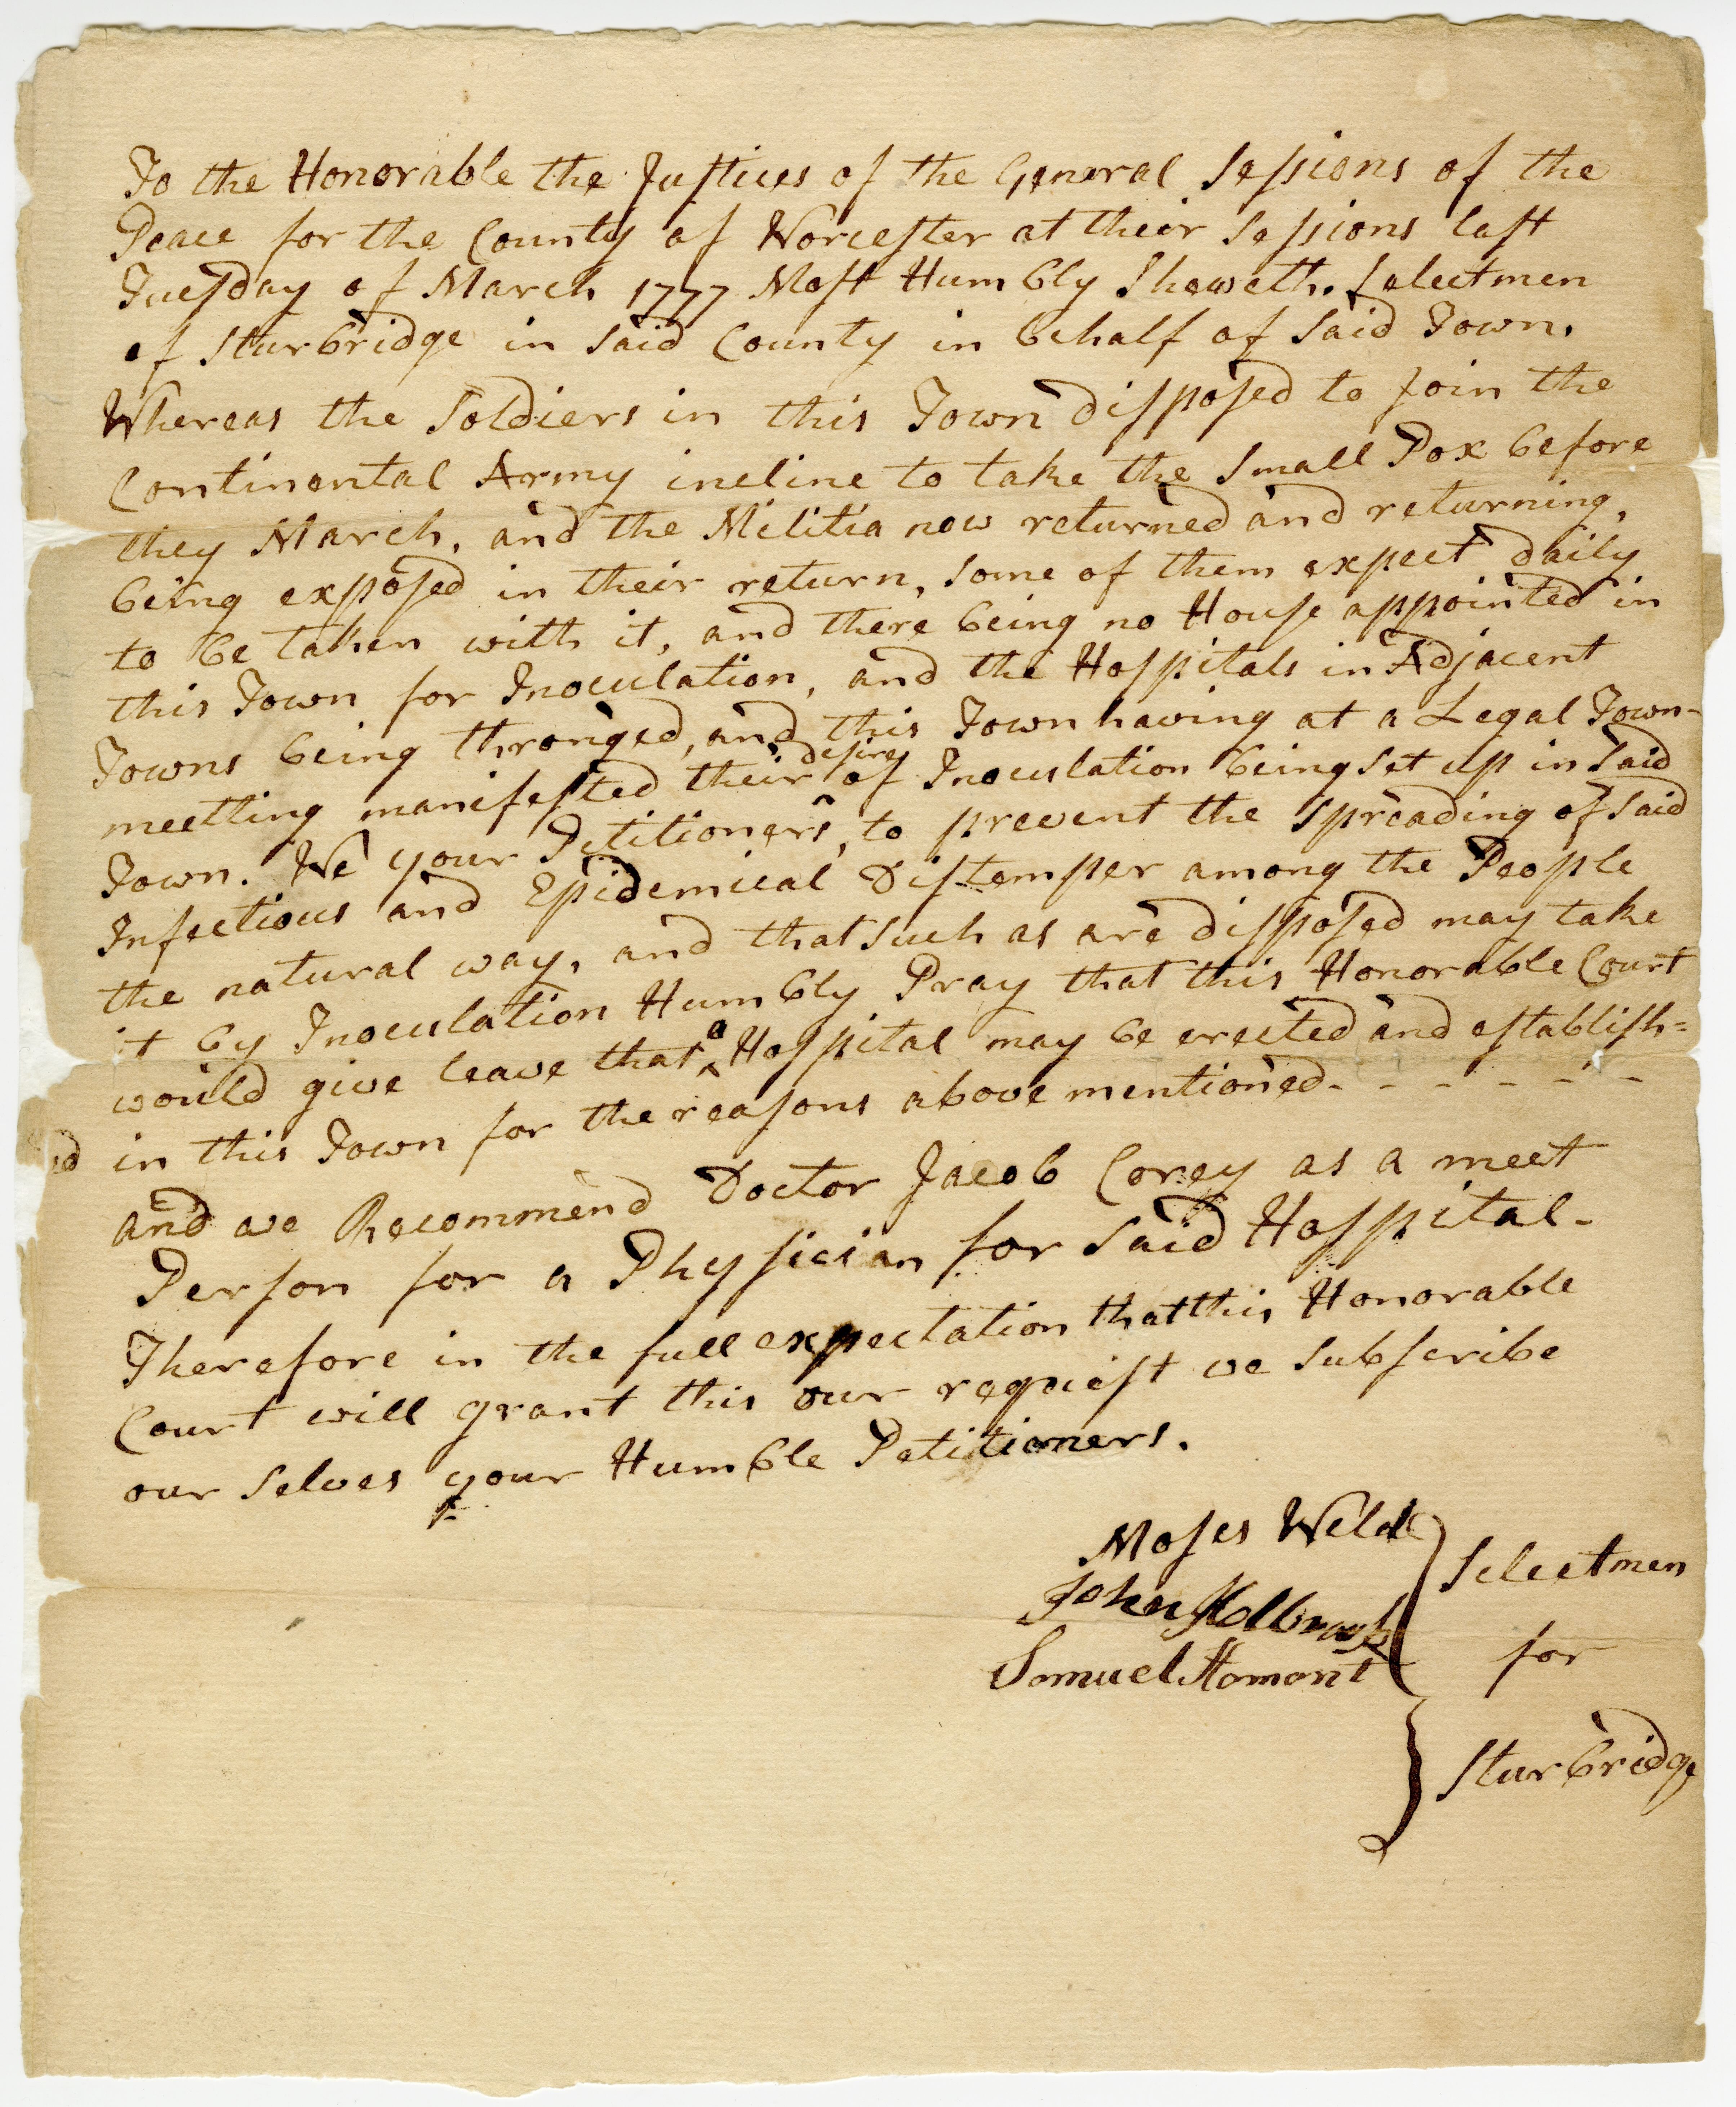 To the Honorable the Justices of the General Sessions of the
Peace for the County of Worcester at their Sessions last
Tuesday of March 1777 Most Humbly Sheweth. Selectmen
of Sturbridge in said County in behalf of said Town.
Whereas the Soldiers in this Town disposed to join the
Continental Army incline to take the Small Pox before
they March, and the Militia now returned and returning,
being exposed in their return, some of them expect daily
to be taken with it, and there being no House appointed in
this Town for Inoculation, and the Hospitals in Adjacent
Towns being thronged, and this Town having at a Legal Town-
meetting manifested their desire of Inoculation being set up in said
Town. We your Petitioners, to prevent the spreading of said
Infectious and Epidemical Distemper among the People
the natural way, and that such as are disposed may take
it by Inoculation Humbly Pray that this Honorable Court
would give leave that a Hospital may be erected and establish=
ed in this Town for the reasons above mentioned - - - - - -
and we Recommend Doctor Jacob Corey as a meet
Person for a Physician for said Hospital-
Therefore in the full expectation that this Honorable
Court will grant this our request we subscribe
our selves your Humble Petitioners.
Moses Weld
John Holbrook
Samuel Hamant
Selectmen
for
Sturbridge